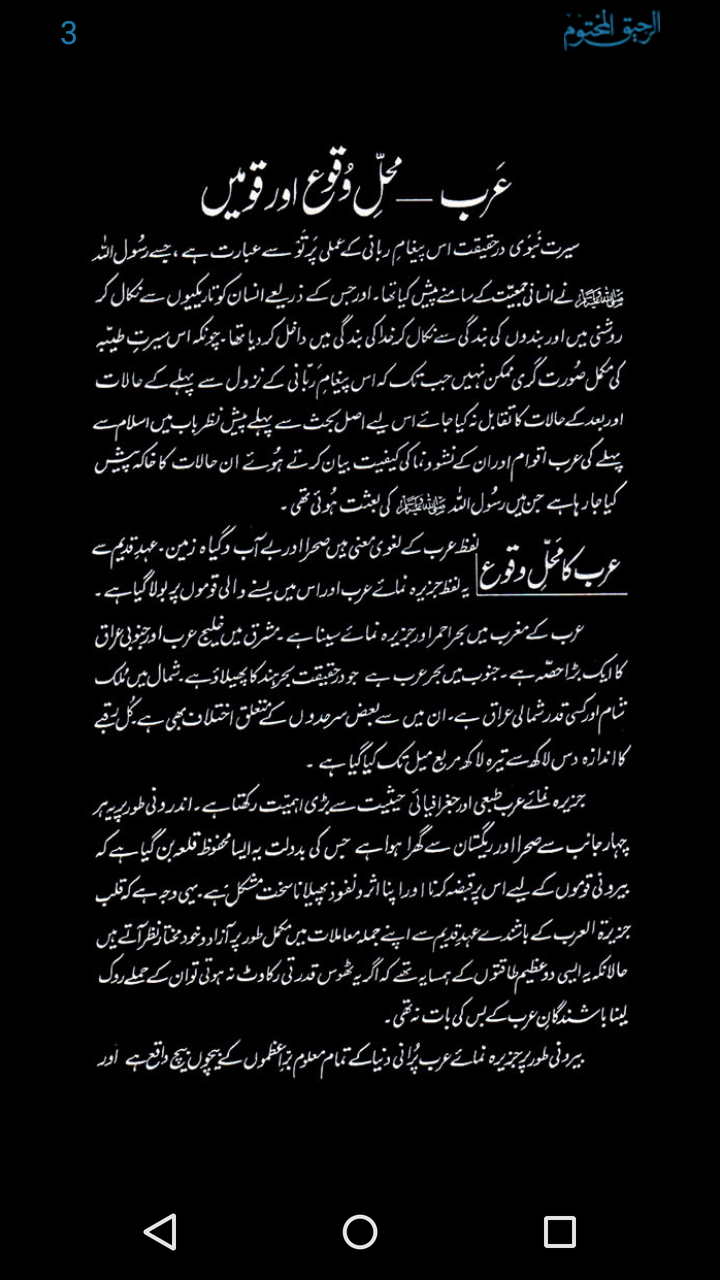 3
الرحیق المختوم
عَرب — محلِّ وُقوع اور قومیں
سیرت نبَوُی درحقیقت اس پیغام ربانی کے عملی پَرتَو سے عبارت ہے ، جسے رسُول اللہ
ﷺ نے انسانی جمعیّت کے سامنے پیش کیا تھا۔ اور جس کے ذریعے انسان کو تاریکیوں سے نکال کر
روشنی میں اور بندوں کی بندگی سے نکال کر خدا کی بندگی میں داخل کر دیا تھا۔ چونکہ اس سیرتِ طیّبہ
کی مکمل صُورت گری ممکن نہیں جب تک کہ اس پیغامِ رَبّانی کے نزول سے پہلے کے حالات
اور بعد کے حالات کا تقابل نہ کیا جائے اس لیے اصل بحث سے پہلے پیش نظر باب میں اسلام سے
پہلے کی عرب اقوام اور ان کے نشو و نما کی کیفیت بیان کرتے ہُوئے ان حالات کا خاکہ پیش
کیا جا رہا ہے جن میں رسُول اللہ ﷺ کی بعثت ہُوئی تھی ۔
عرب کا مَحَلِّ وقوع
لفظ عرب کے لغوی معنی ہیں صحرا اور بے آب و گیاہ زمین۔ عہدِ قدیم سے
یہ لفظ جزیرہ نمائے عرب اور اس میں بسنے والی قوموں پر بولا گیا ہے ۔
عرب کے مغرب میں بحر احمر اور جزیرہ نمائے سینا ہے ۔ مشرق میں خلیج عرب اور جنوبی عراق
کا ایک بڑا حصّہ ہے ۔ جنوب میں بحر عرب ہے جو درحقیقت بحر ہند کا پھیلاؤ ہے۔ شمال میں مُلک
شام اور کسی قدر شمالی عراق ہے۔ ان میں سے بعض سرحدوں کے متعلق اختلاف بھی ہے ۔ کُل رقبے
کا اندازہ دس لاکھ سے تیرہ لاکھ مربع میل تک کیا گیا ہے ۔
جزیرہ نمائے عرب طبعی اور جغرافیائی حیثیت سے بڑی اہمیّت رکھتا ہے ۔ اندرونی طور پر یہ ہر
چہار جانب سے صحرا اور ریگستان سے گھرا ہوا ہے جس کی بدولت یہ ایسا محفوظ قلعہ بن گیا ہے کہ
بیرونی قوموں کے لیے اس پر قبضہ کرنا اور اپنا اثر و نفوذ پھیلانا سخت مشکل ہے ۔ یہی وجہ ہے کہ قلب
جزیرۃ العرب کے باشندے عہد قدیم سے اپنے جملہ معاملات میں مکمل طور پر آزاد و خود مختار نظر آتے ہیں
حالانکہ یہ ایسی دو عظیم طاقتوں کے ہمسایہ تھے کہ اگر یہ ٹھوس قدرتی رکاوٹ نہ ہوتی تو ان کے حملے روک
لینا باشندگانِ عرب کے بس کی بات نہ تھی ۔
بیرونی طور پر جزیرہ نمائے عرب پُرانی دنیا کے تمام معلوم برّاعظموں کے بیچوں بیچ واقع ہے اور